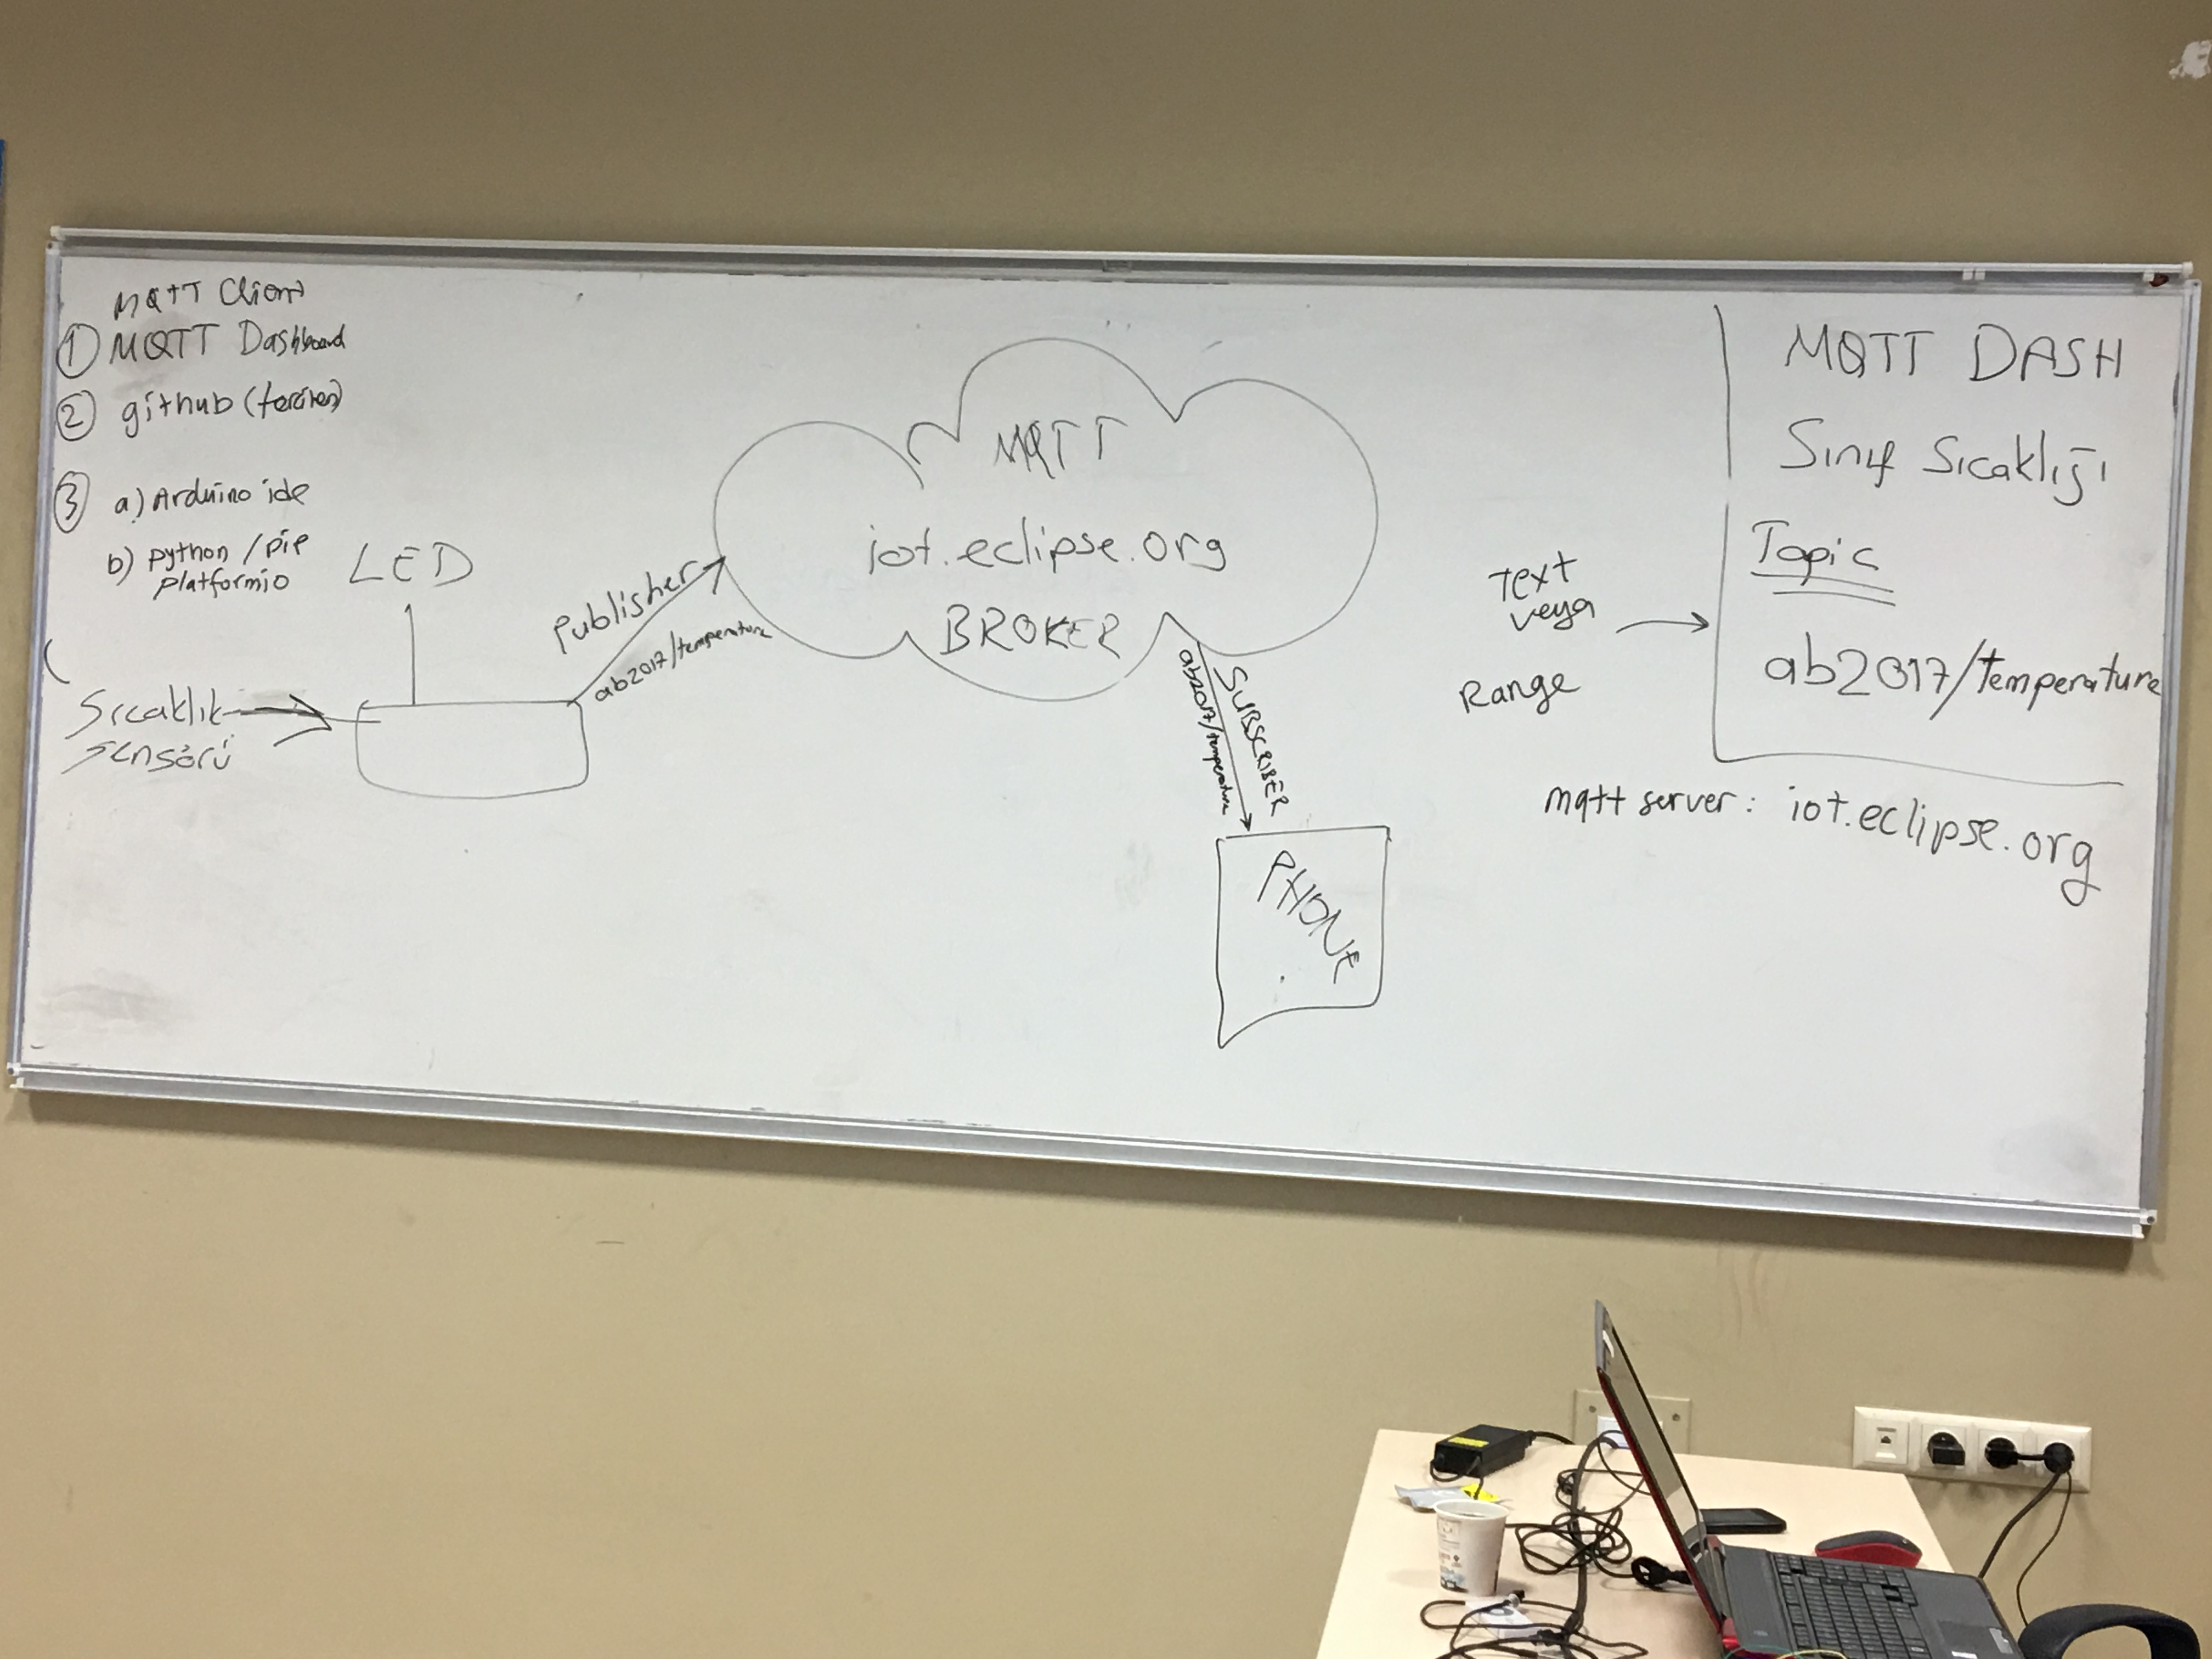 MQTT Client
① MQTT Dashboard
② github
③ a) Arduino ide
b) python / pip
platformio
LED
Sıcaklık
sensörü
Publisher
ab2017/temperature
MQTT
iot.eclipse.org
BROKER
SUBSCRIBER
ab2017/temperature
PHONE
Text
veya
Range
MQTT DASH
Sınıf Sıcaklığı
Topic
ab2017/temperature
mqtt server: iot.eclipse.org